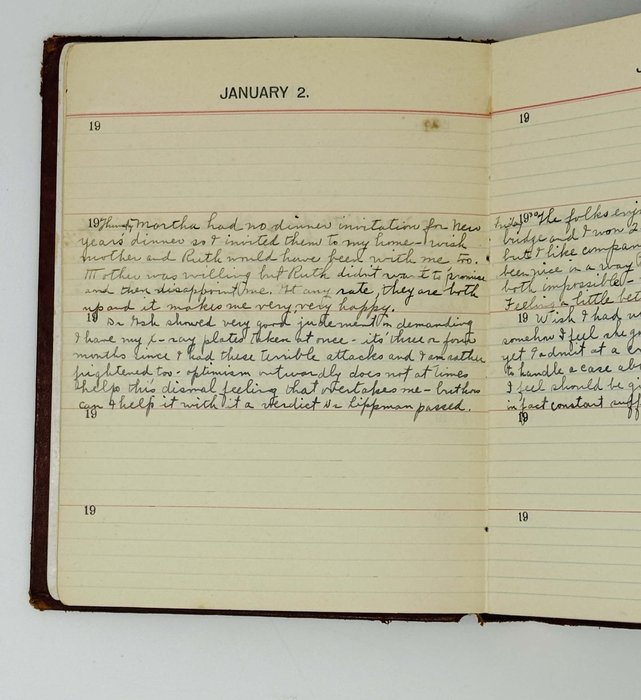 JANUARY 2.
19
19 Thurs. Martha had no dinner invitation for New
years dinner so I invited them to my home - wish
mother and Ruth would have been with me too.
Mother was willing but Ruth didn't want to promise
and then disappoint me. At any rate, they are both
up and it makes me very, very happy.
19 Dr showed very good judgement in demanding
I have my x-ray plates taken at once - it's three or four
months since I had these terrible attacks and I am rather
frightened too - optimism outwardly does not at times
help this dismal feeling that overtakes me - but how
can I help it with it a verdict Dr Lippman passed.
19
19
19
Friday The folks enj
bridge and I won 2
but I like compan
been nice in a way
both impossible -
Feeling a little be
19 Wish I had
somehow I feel she
yet I admit at a
to handle a case abo
I feel should be g
in fact constant suff
19
19